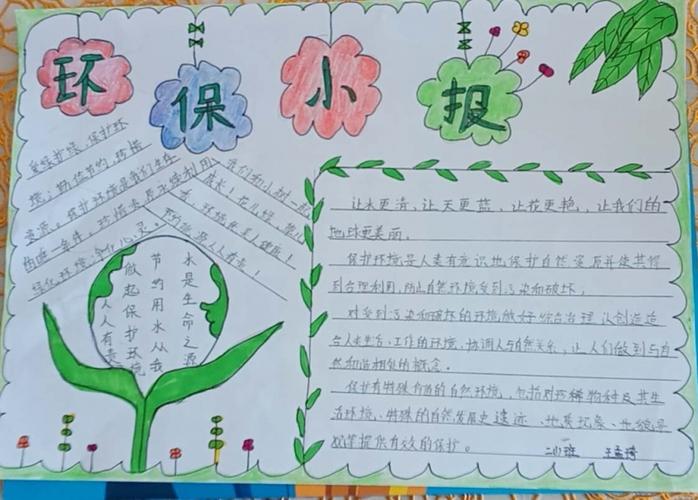 环保小报
爱绿护绿、保护环
境；勤俭节约，珍惜
资源。保护环境是我们生存
的唯一条件，珍惜资源永续利用
绿化环境；净化心灵。
我们和小树一起
成长！花儿绿，
节约能源人人有责！
水是生命之源
节约用水从我
做起保护环境
人人有责
让水更清、让天更蓝、让花更艳，让我们的
地球更美丽。
保护环境是人类有意识地保护自然资源并使其得
到合理利用，防止自然环境受到污染和破坏；
对受到污染和破坏的环境做好综合治理，以创造适
合人类生活、工作的环境，协调人与自然关系，让人们做到与自
然和谐相处的概念。
保护有特殊价值的自然环境，包括对珍稀物种及其生
活环境、特殊的自然发展史遗迹、地质现象、地貌景
观等提供有效的保护。
二小班